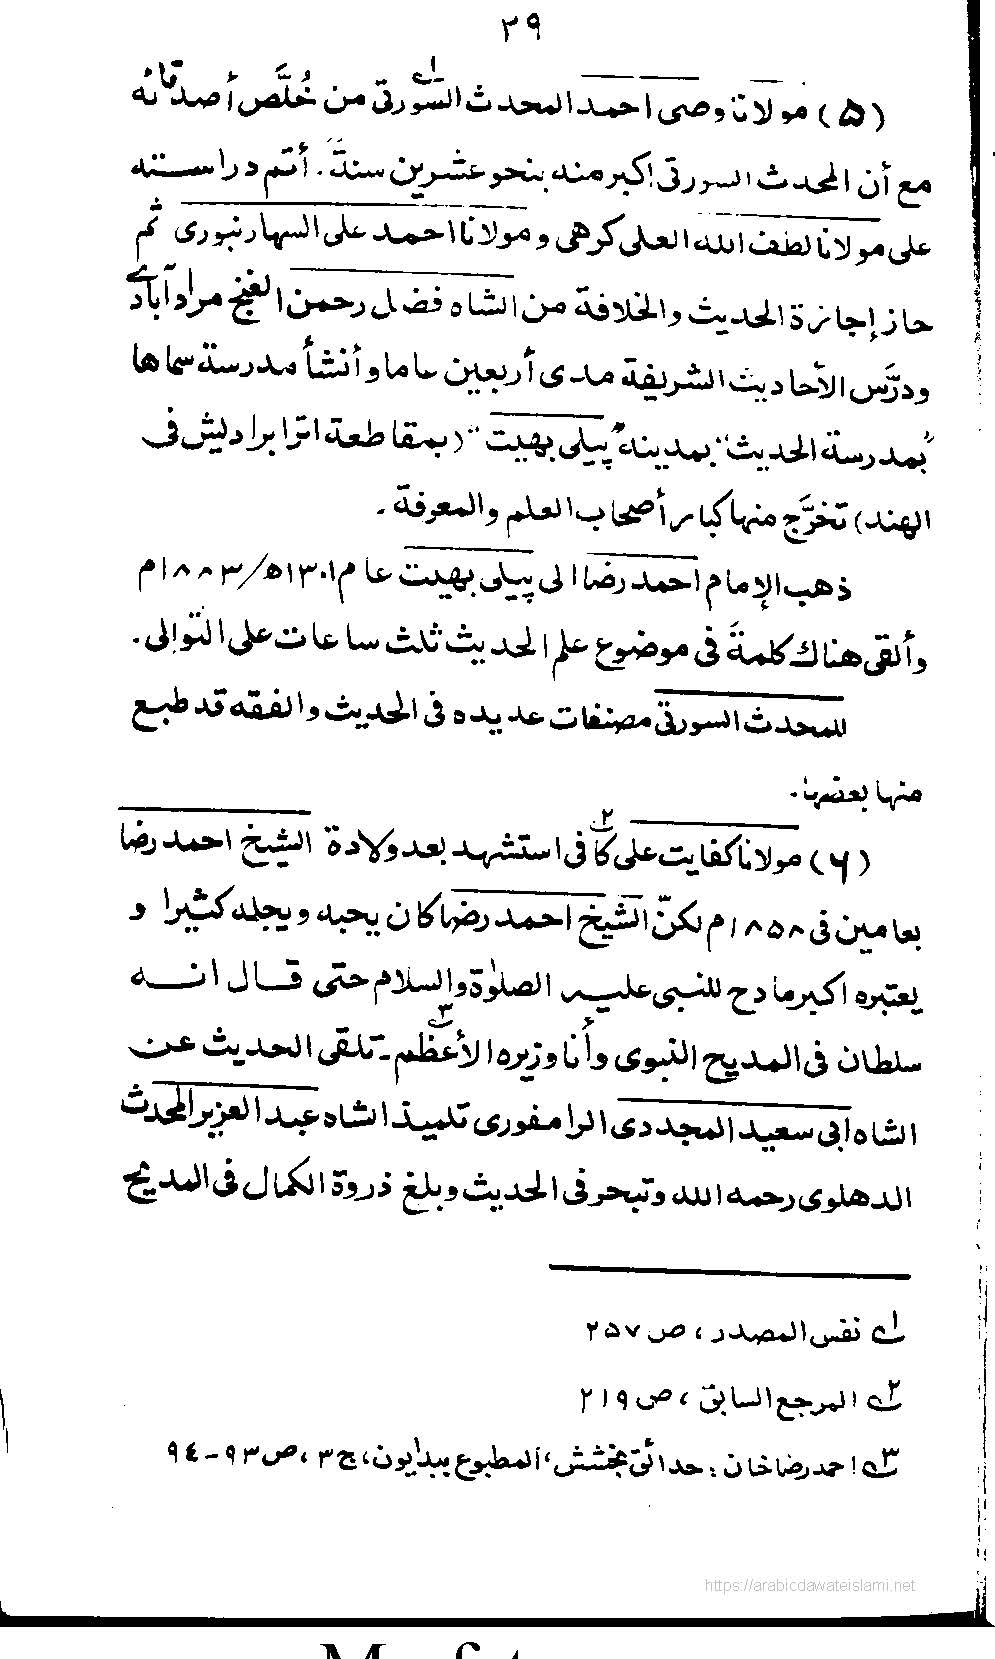 ٣٩
(۵) مولانا وصی احمد المحدث السّورتی<sup>١</sup> من خُلَّص أصدقائه
مع أن المحدث السورتی اکبر منه بنحو عشرین سنةً. أتم دراسته
علی مولانا لطف الله العلی کرهی و مولانا احمد علی السهارنبوری ثم
حاز إجازة الحدیث والخلافة من الشاه فضل رحمن الغنج مرادآبادی
ودرَّس الأحادیث الشریفة مدی أربعین عاما و أنشأ مدرسة سماها
"بمدرسة الحدیث" بمدینة "پیلی بهیت" (بمقاطعة اترا برادیش فی
الهند) تخرَّج منها کبار أصحاب العلم والمعرفة.
ذهب الإمام احمد رضا الی پیلی بهیت عام ١٣٠١ھ/١٨٨٣م
وألقی هناك کلمةً فی موضوع علم الحدیث ثلث ساعات علی التوالی.
للمحدث السورتی مصنفات عدیده فی الحدیث والفقه قد طبع
منها بعضها.
(۶) مولانا کفایت علی کافی<sup>٢</sup> استشهد بعد ولادة الشیخ احمد رضا
بعامین فی ١٨۵٨م لکنّ الشیخ احمد رضا کان یحبه ویجله کثیرا و
یعتبره اکبر مادح للنبی علیه الصلوٰة والسلام حتی قال انه
سلطان فی المدیح النبوی وأنا وزیره الأعظم<sup>٣</sup>۔ تلقی الحدیث عن
الشاه ابی سعید المجددی الرامفوری تلمیذ الشاه عبد العزیز المحدث
الدهلوی رحمه الله وتبحر فی الحدیث وبلغ ذروة الکمال فی المدیح
١؎ نفس المصدر، ص ٢۵٧
٢؎ المرجع السابق، ص ٢١٩
٣؎ احمد رضا خان: حدائق بخشش، المطبوع ببدایون، ج ٣، ص ٩٣-٩٤
https://arabicdawateislami.net